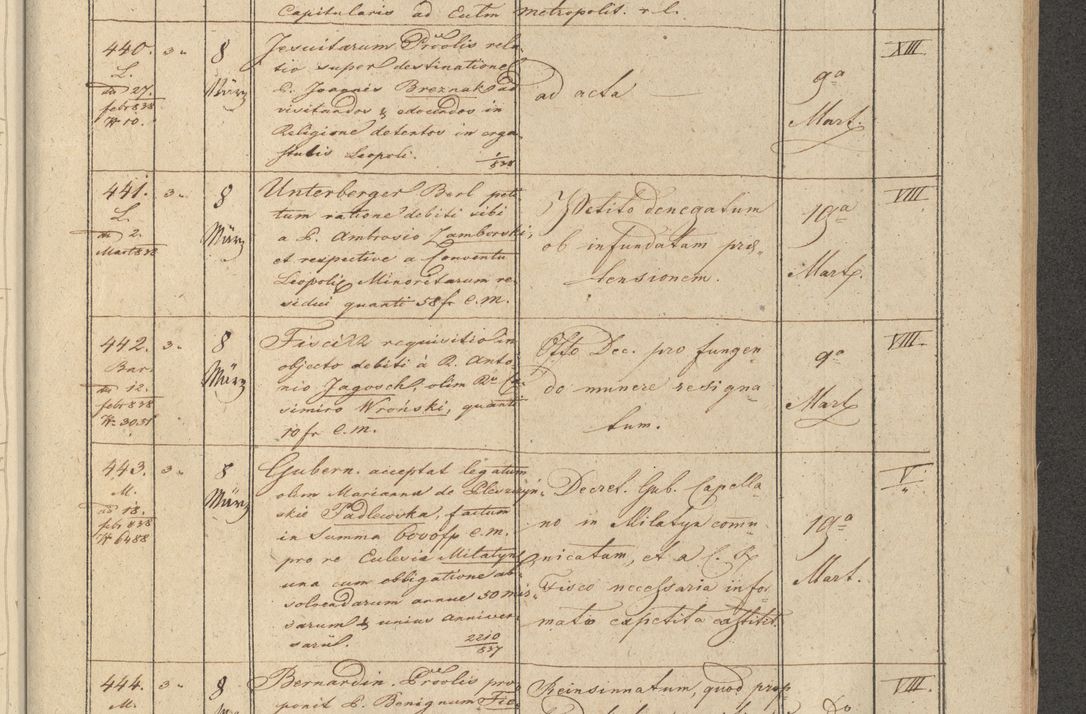 Capitularis ad Eccltm Metropolit. r. l.
440. 3
L.
dd 27.
febr 838
N 10.
8
März
Jesuitarum Proolis rela-
tio super destinatione
P. Joannis Breznak ad
visitandos & edocendos in
Religione detentos in erga-
stulis Leopoli.
1/838
ad acta
9a
Mart.
XIII
441. 3
L.
dd 2.
Mart 838
8
März
Unterberger Berl peti-
tum ratione debiti sibi
a P. Ambrosio Zamborski,
et respective a Conventu
Leopoli Minoritarum re-
sidui quanti 58 fr C.M.
Petito denegatum
ob infundatam præ-
tensionem.
19a
Mart.
VIII
442. 3
Bar.
dd 12.
febr 838
N 3031
8
März
Fisci requisitio in
objecto debiti à R. Anto-
nio Jagosch, olim Rdo Ca-
simiro Wroński, quanti
10 fr C.M.
Offo Dec. pro fungen-
do munere resigna-
tum.
9a
Mart.
VIII.
443. 3
M.
dd 18.
febr 838
N 6488
8
März
Gubern. acceptat legatum
olim Marianna de
skie Padlewska, factum
in Summa 600 fr C.M.
pro re Ecclesia Milatyn
una cum obligatione ab-
solvendarum annue 50 mis-
sarum & unius anniver-
sarii.
2210/837
Decret. Gub. Capella-
no in Milatyn comu-
nicatum, et a C. R.
Fisco necessaria info-
matio expetita
19a
Mart.
V
444. 3
M.
8
Bernardin. Proolis pro-
ponit P. Benignum
Reinsinnatum, quod prop
VIII.